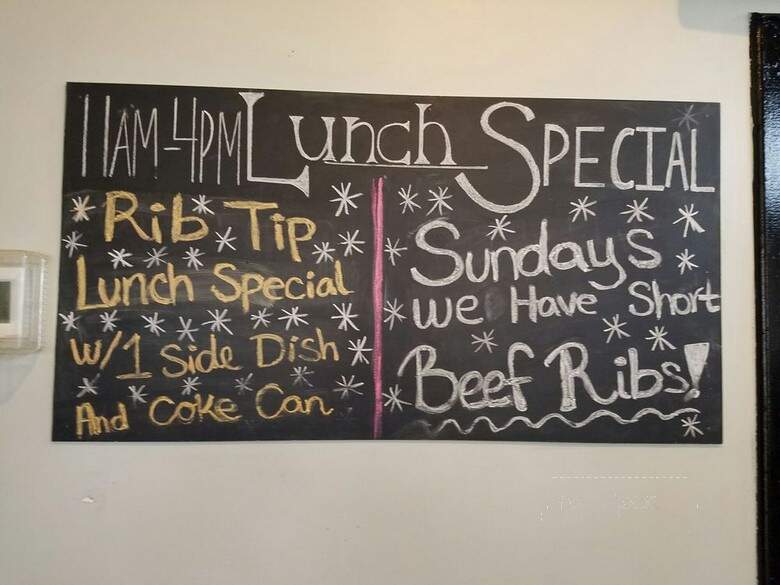 11AM-4PM Lunch SPECIAL
Rib Tip
Lunch Special
W/1 Side Dish
And Coke Can
Sundays
we Have Short
Beef Ribs!